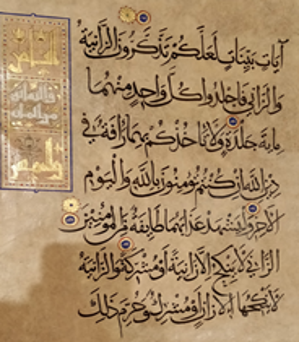 آيَاتٍ بَيِّنَاتٍ لَعَلَّكُمْ تَذَكَّرُونَ الزَّانِيَةُ
وَالزَّانِي فَاجْلِدُوا كُلَّ وَاحِدٍ مِنْهُمَا
مِائَةَ جَلْدَةٍ وَلَا تَأْخُذْكُمْ بِهِمَا رَأْفَةٌ فِي
دِينِ اللَّهِ إِنْ كُنْتُمْ تُؤْمِنُونَ بِاللَّهِ وَالْيَوْمِ
الْآخِرِ وَلْيَشْهَدْ عَذَابَهُمَا طَائِفَةٌ مِنَ الْمُؤْمِنِينَ
الزَّانِي لَا يَنْكِحُ إِلَّا زَانِيَةً أَوْ مُشْرِكَةً وَالزَّانِيَةُ
لَا يَنْكِحُهَا إِلَّا زَانٍ أَوْ مُشْرِكٌ وَحُرِّمَ ذَلِكَ